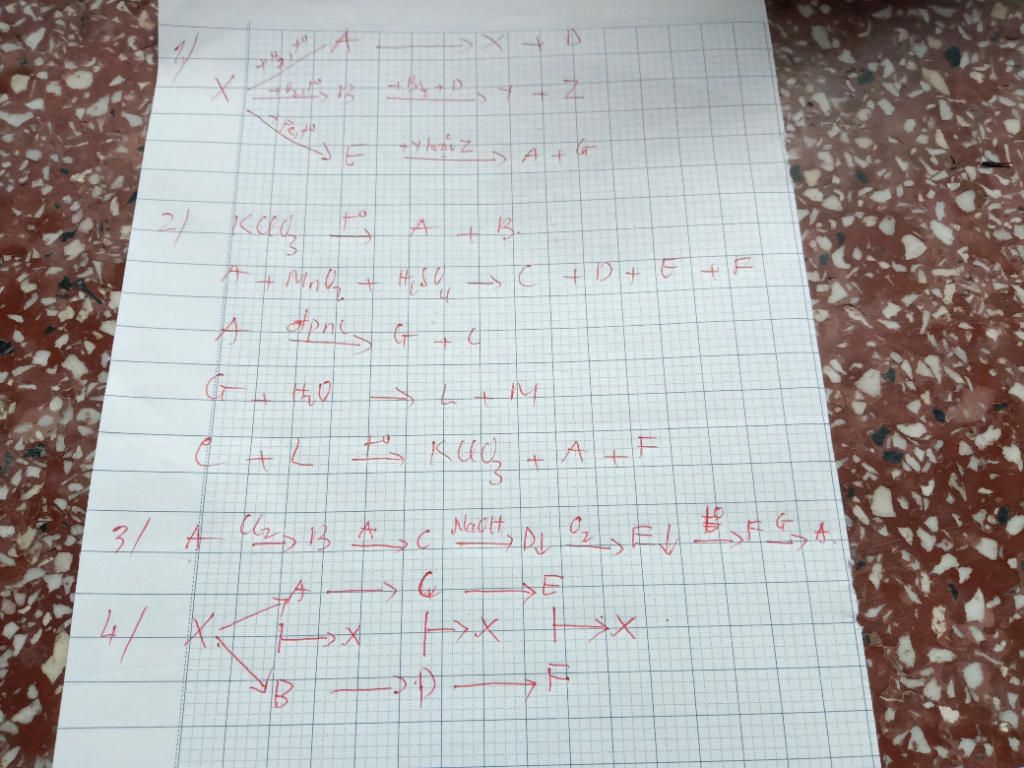 1/ +H2, t° A → X + D
X +O2, t° → B +Br2 + D → Y + Z
+Fe, t° → E +Y hoặc Z → A + G
2/ KClO3 t° → A + B.
A + MnO2 + H2SO4 → C + D + E + F
A đpnc → G + C
G + H2O → L + M
C + L t° → KClO3 + A + F
3/ A Cl2 → B A → C NaOH → D↓ O2 → E↓ t° → F G → A
A → C → E
4/ X. ↦ X ↦ X ↦ X
B → D → F